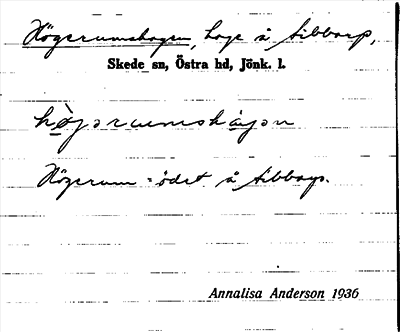 Högerumshagen, hage å Sibbarp,
Skede sn, Östra hd, Jönk. l.
högərumshagən
Högerum-ödet å Sibbarp.
Annalisa Anderson 1936